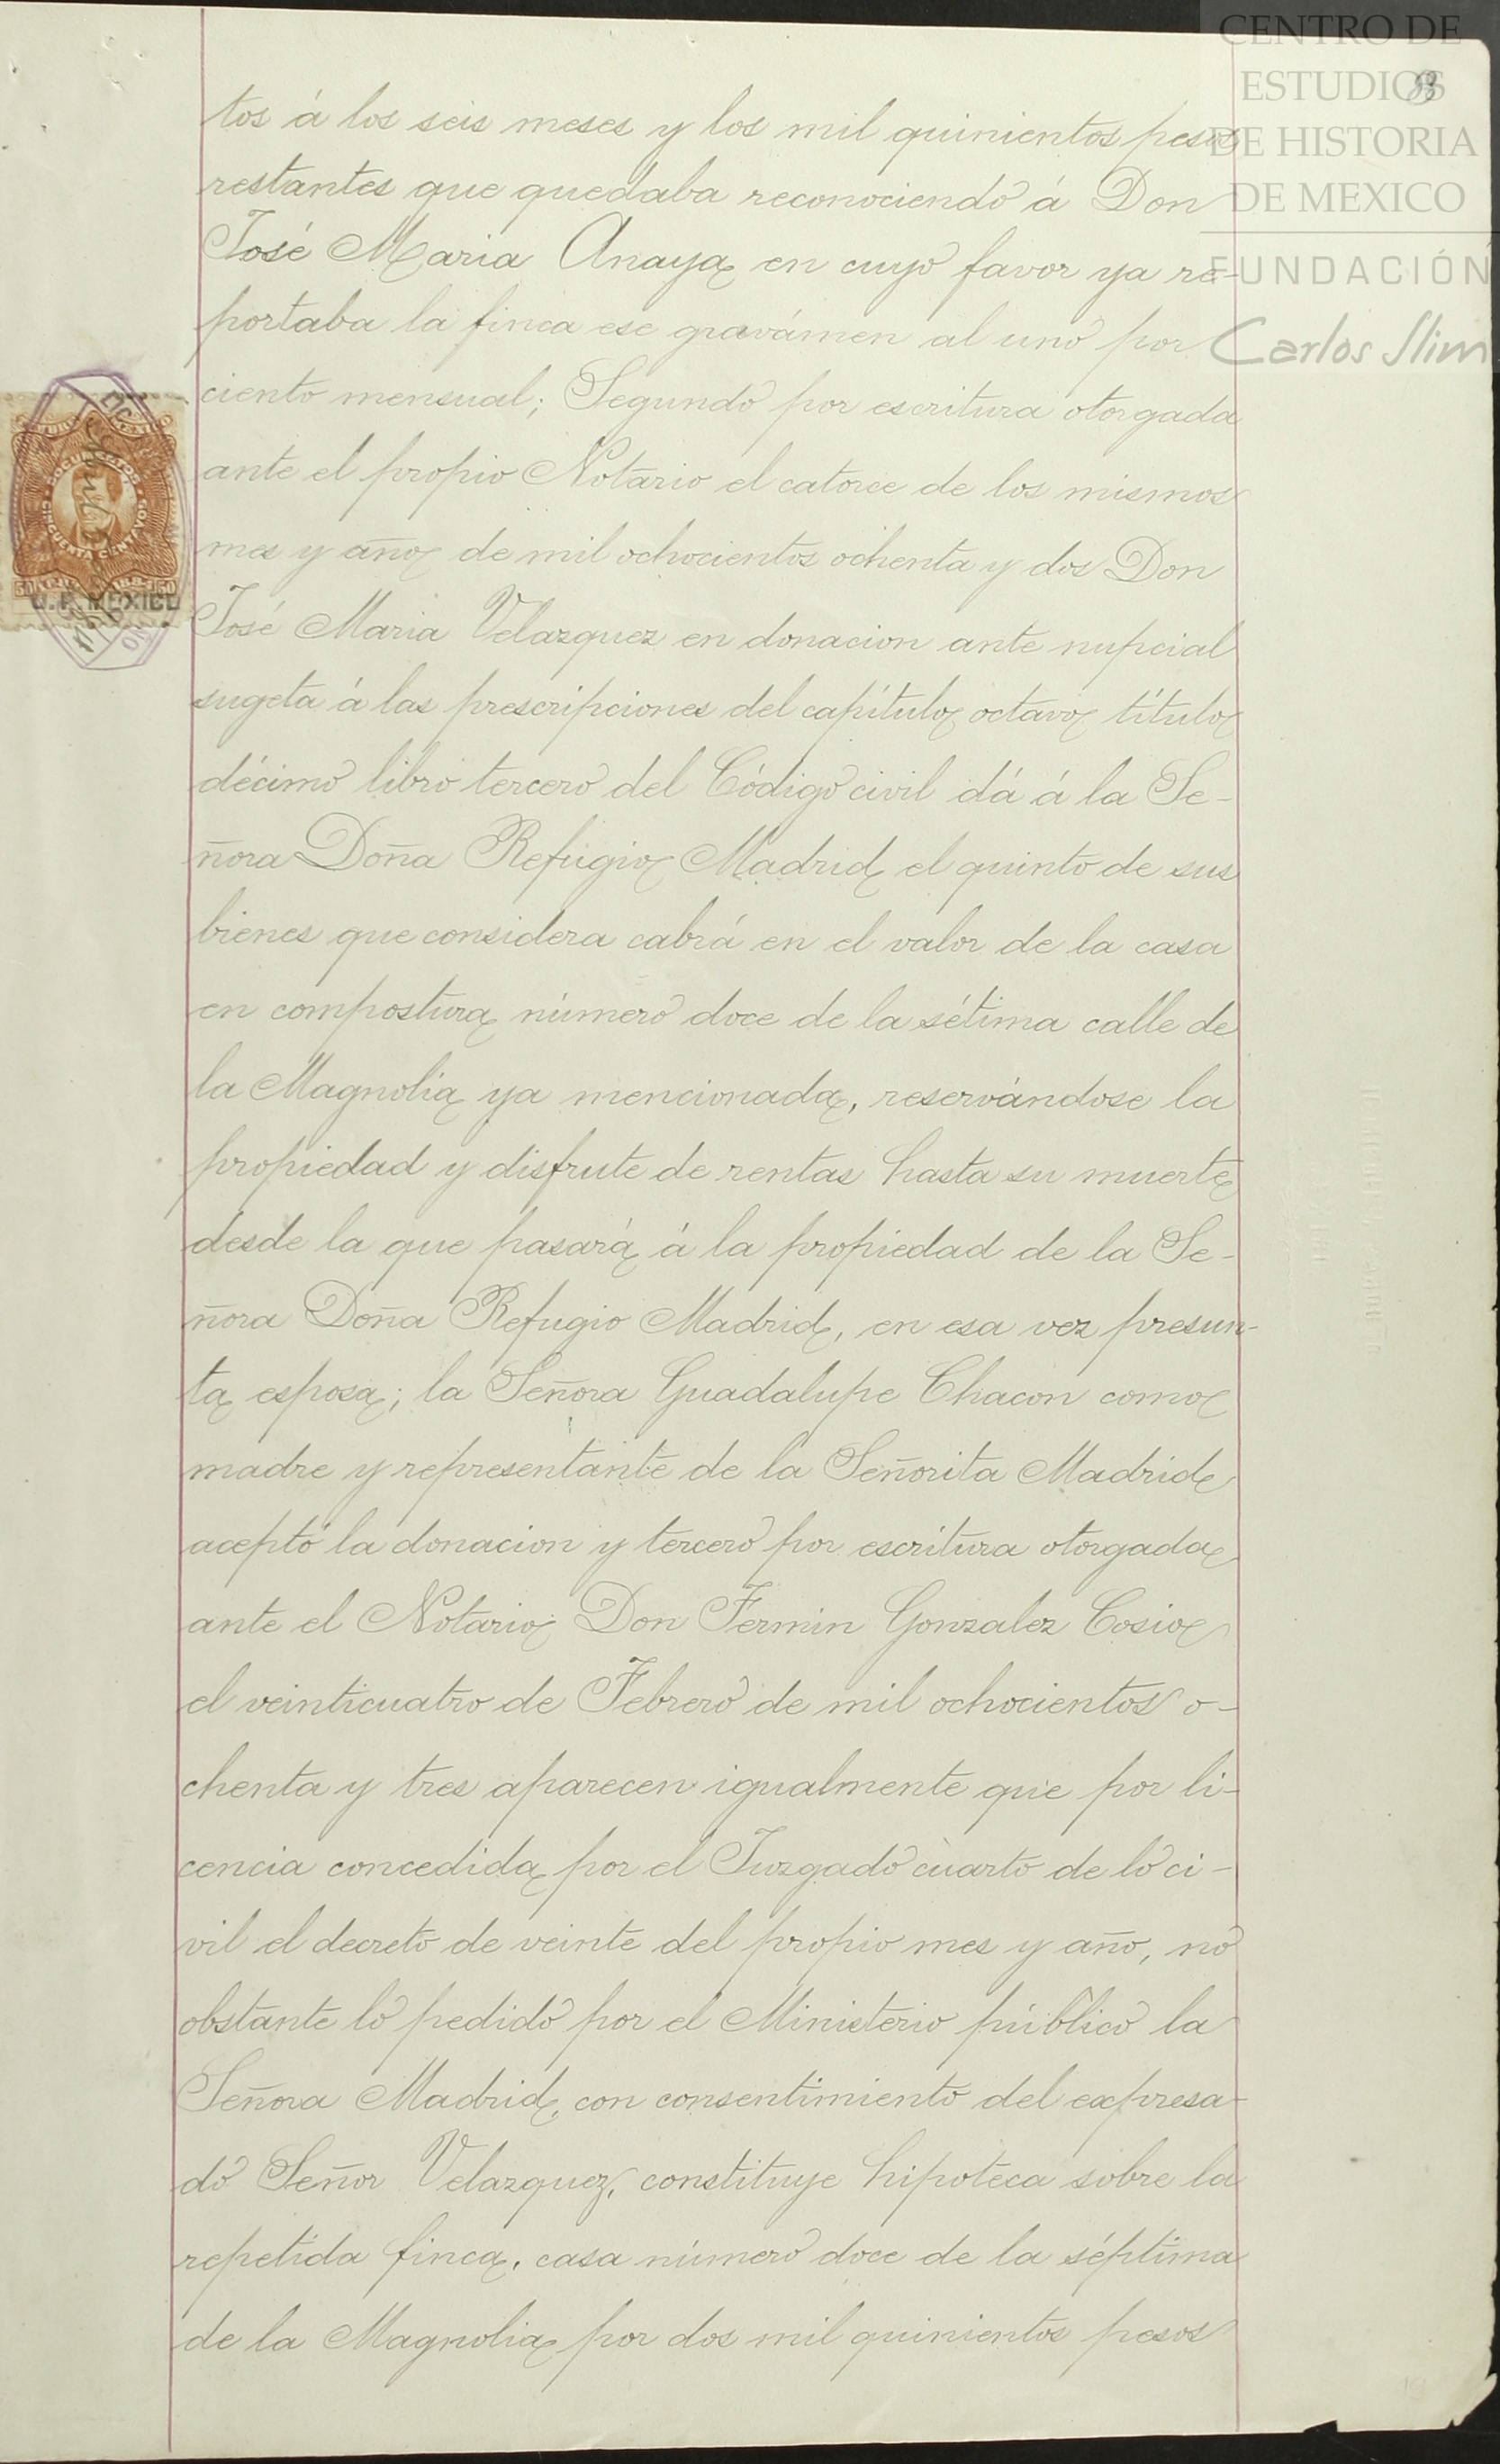 CENTRO DE
ESTUDIOS
DE HISTORIA
DE MEXICO
FUNDACIÓN
Carlos Slim
tos á los seis meses y los mil quinientos pesos
restantes que quedaba reconociendo á Don
José Maria Anaya en cuyo favor ya re-
portaba la finca ese gravámen al uno por
ciento mensual; Segundo por escritura otorgada
ante el propio Notario el catorce de los mismos
mes y año de mil ochocientos ochenta y dos Don
José Maria Velazquez en donacion ante nupcial
sugeta á las prescripciones del capítulo octavo título
décimo libro tercero del Código civil dá á la Se-
ñora Doña Refugio Madrid el quinto de sus
bienes que considera cabrá en el valor de la casa
en compostura número doce de la sétima calle de
la Magnolia ya mencionada, reservándose la
propiedad y disfrute de rentas hasta su muerte
desde la que pasará á la propiedad de la Se-
ñora Doña Refugio Madrid, en esa vez presun-
ta esposa; la Señora Guadalupe Chacon como
madre y representante de la Señorita Madrid
aceptó la donacion y tercero por escritura otorgada
ante el Notario Don Fermin Gonzalez Cosio
el veinticuatro de Febrero de mil ochocientos o-
chenta y tres aparecen igualmente que por li-
cencia concedida por el Juzgado cuarto de lo ci-
vil el decreto de veinte del propio mes y año, no
obstante lo pedido por el Ministerio público la
Señora Madrid, con consentimiento del expresa-
do Señor Velazquez, constituye hipoteca sobre la
repetida finca, casa número doce de la séptima
de la Magnolia por dos mil quinientos pesos
DOCUMENTOS
CINCUENTA CENTAVOS
O.P. MEXICO